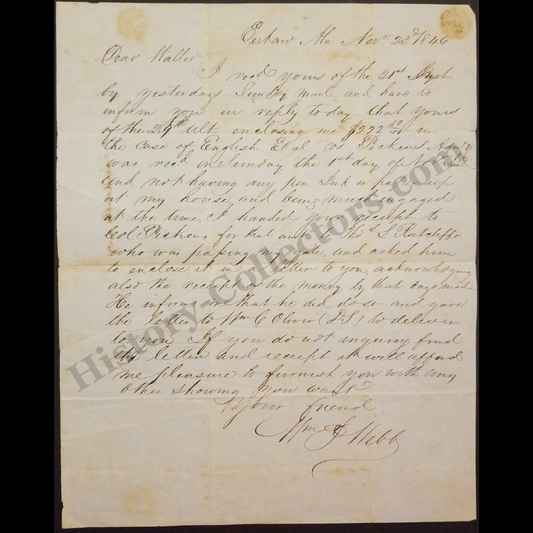 Eutaw Ala Nov 23d 1846
Dear Walter
I recd yours of the 21st Inst
by yesterdays mail, and have to
inform you in reply to day that yours
of the 29th Ult. enclosing me $222 in
the case of English Et al vs Pickens Adm'r
was recd on Sunday the 1st day of Nov
and not having any pen Ink or paper up
at my house, and being much engaged
at the time, I handed your receipt to
Col Pickens for that amt to Thos L Ratcliffe
who was passing my gate, and asked him
to enclose it in a letter to you, acknowledging
also the receipt of the money by that
He informs me that he did do so and gave
the letter to Wm C Oliver (D.S.) to deliver
to you If you do not on inquiry find
the letter and receipt it will afford
me pleasure to furnish you with any
other showing you want
Your friend
Wm Webb
History-Collectors.com